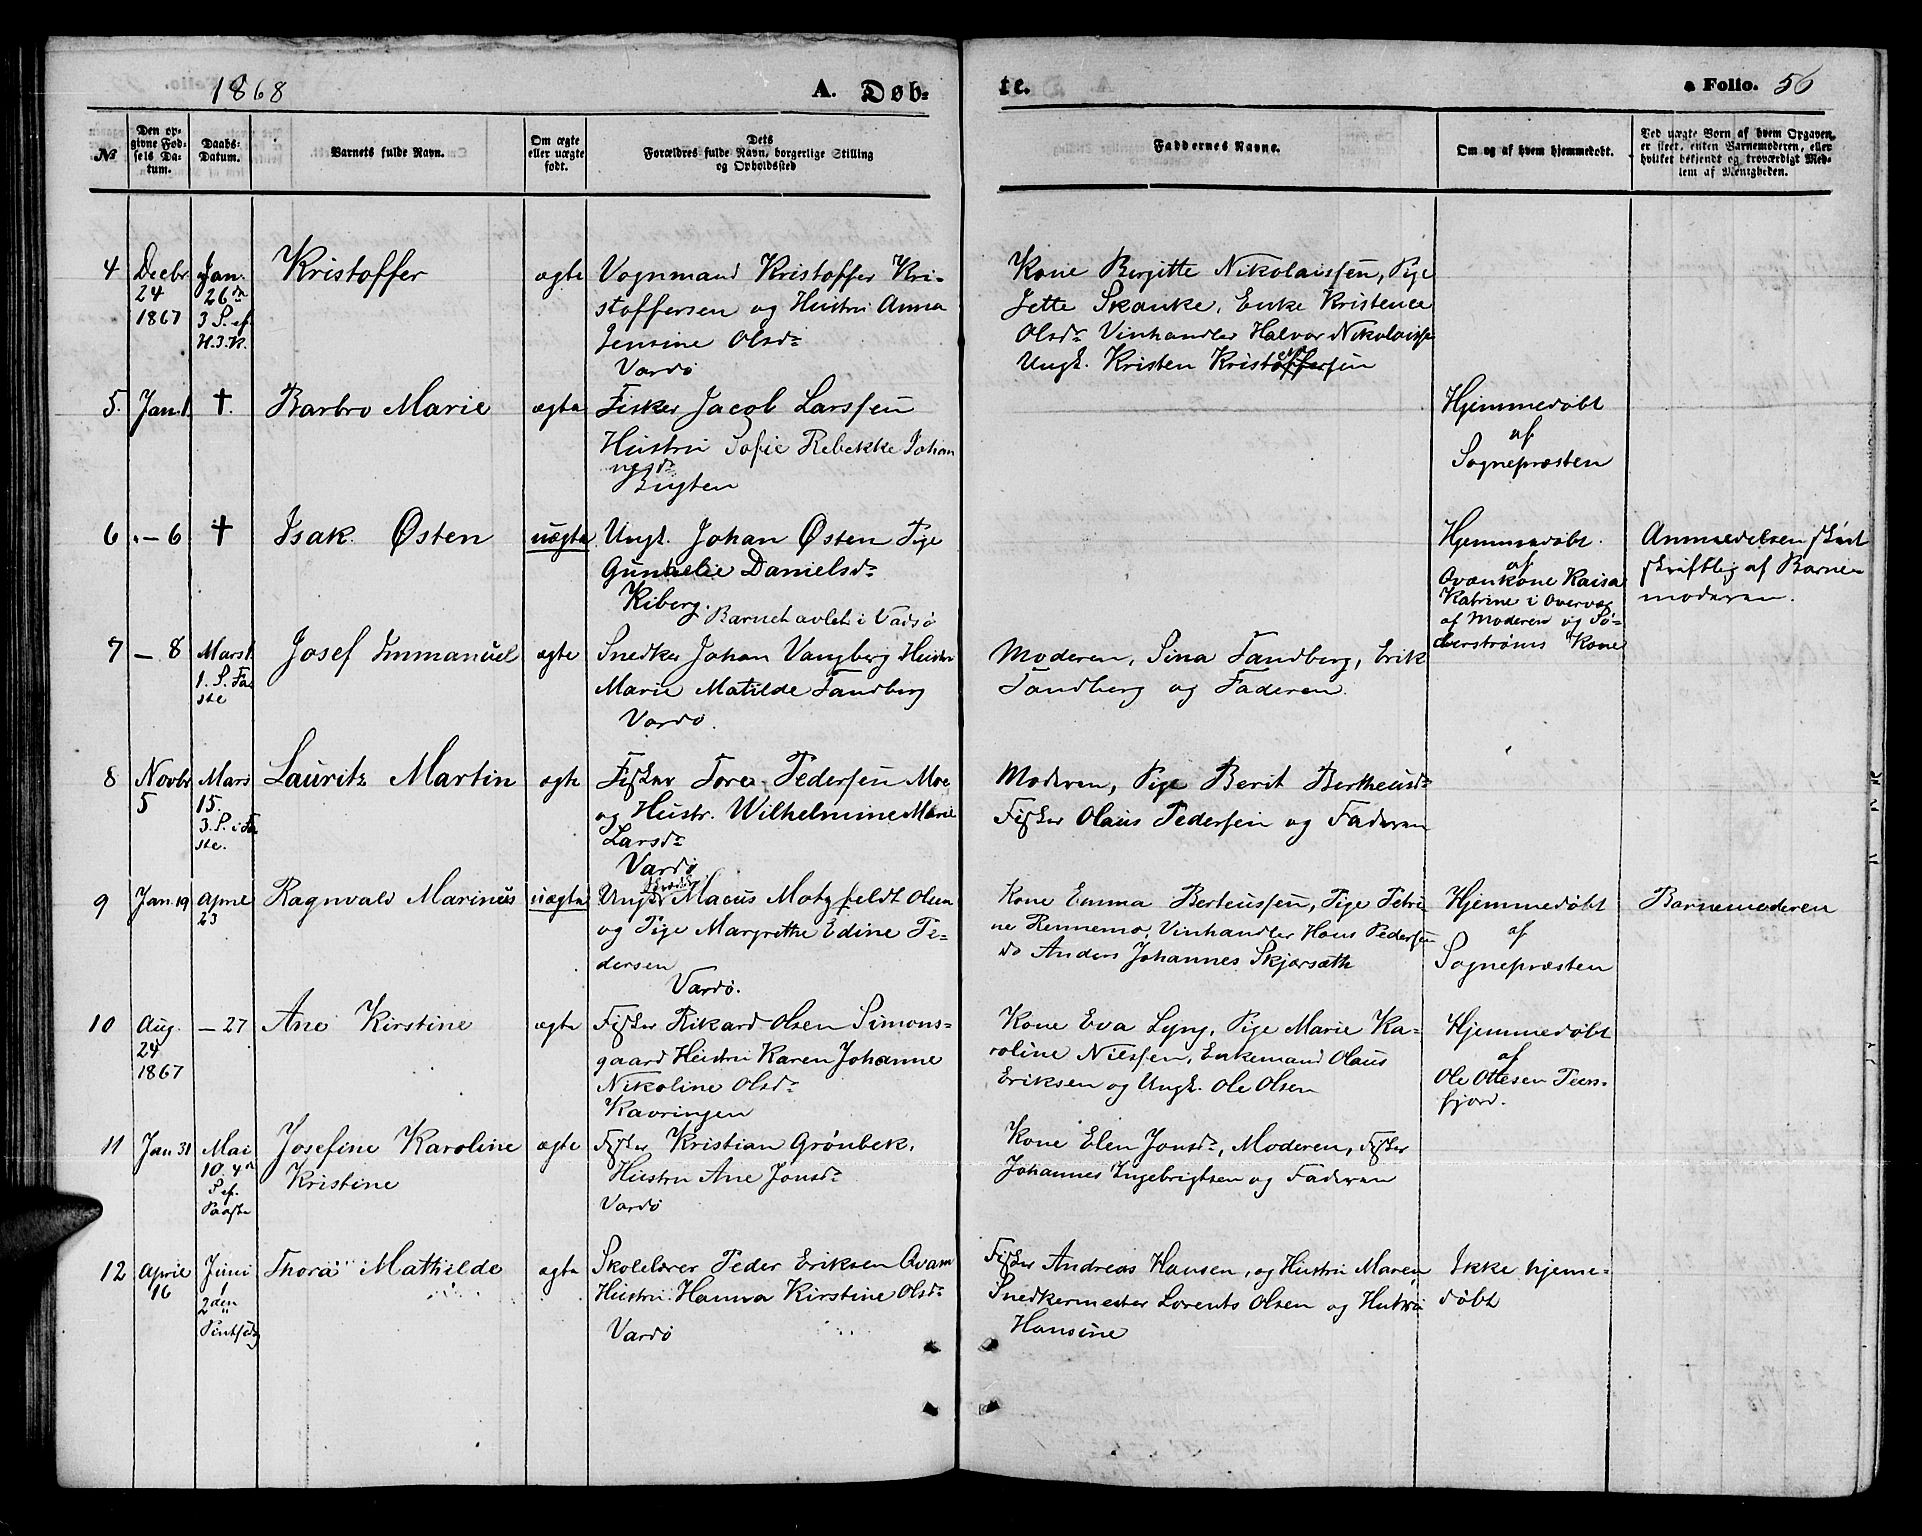 1868
A. Døb-
te.
a Folio. 56
№
Den op-
givne Fød-
sels Da-
tum.
Daabs-
Datum.
Barnets fulde Navn.
Om ægte
eller uægte
født.
Dets
Forældres fulde Navn, borgerlige Stilling
og Opholdssted
Faddernes Navne.
Om og af hvem hjemmedøbt.
Ved uægte Børn af hvem Opgaven
er skeet, enten Barnemoderen, eller
hvilket bekjendt og troværdigt Med-
lem af Menigheden.
4
Decbr
24
1867
Jan.
26de
3 S. ef.
H.3.K.
Kristoffer
ægte
Vognmand Kristoffer Kri-
stoffersen og Hustru Anna
Jensine Olsdr
Vardø
Kone Birgitte Nikolaissen, Pige
Jette Skanke, Enke Kristence
Olsdr Vinhandler Halvor Nikolaisse
Ungk. Kristen Kristoffersen
5.
Jan. 1.
†.
Barbro Marie
ægte
Fisker Jacob Larssen
Hustru Sofie Rebekke Johan
nesdr
Bugten
Hjemmedøbt
af
Sognepræsten
6
- 6
†
Isak Østen
uægte
Ungk. Johan Østen Pige
Gunhelie Danielsdr
Kiberg. Barnet avlet i Vadsø
Hjemmedøbt
af
Qvænkone Kaisa
Katrine i Overvær
af Moderen og Sø-
derstrøms Kone
Anmeldelsen skeet
skriftlig af Barne-
moderen.
7
- 8
Mars 1.
1. S. Fa
ste
Josef Immanuel
ægte
Snedker Johan Vangberg Hustru
Marie Matilde Tandberg
Vardø.
Moderen, Sina Tandberg, Erik
Tandberg og Faderen.
8
Novbr
5
Mars
15.
3. S. i Fa
ste.
Lauritz Martin
ægte
Fisker Tore Pedersen Moe
og Hustr. Wilhelmine Marie
Larsdr
Vardø
Moderen, Pige Berit Bertheusdr
Fisker Olaus Pedersen og Faderen
9
Jan. 19
April
23
Ragnvald Marinus
uægte
Ungk. Macus Motzfeldt Olsen
og Pige Margrethe Edine Pe-
dersen
Vardø.
Kone Emma Berteussen, Pige Petri-
ne Rennemo, Vinhandler Hans Pedersen
do Anders Johannes Skjærsæth
Hjemmedøbt
af
Sognepræsten
Barnemoderen
10
Aug.
24
1867
- 27
Ane Kirstine
ægte
Fisker Rikard Olsen Simons-
gaard Hustru Karen Johanne
Nikoline Olsdr
Kavringen
Kone Eva Lyng, Pige Marie Ka-
roline Nilssen, Enkemand Olaus
Eriksen og Ungk. Ole Olsen
Hjemmedøbt
af
Ole Ottesen Pers-
fjord.
11
Jan 31
Mai
10. 4de
S ef.
Paaske
Josefine Karoline
Kristine
ægte
Fisker Kristian Grønbek,
Hustru Ane Jonsdr
Vardø
Kone Elen Jonsdr, Moderen, Fisker
Johannes Ingebrigtsen og Faderen
12
April
16
Juni
1
2den
Pintsedag
Thora Mathilde
ægte
Skolelærer Peder Eriksen Qvam
Hustru Hanna Kirstine Olsdr
Vardø
Fisker Andreas Hansen, og Hustru Maren
Snedkermester Lorents Olsen og Hustru
Hansine
Ikke hjemme-
døbt